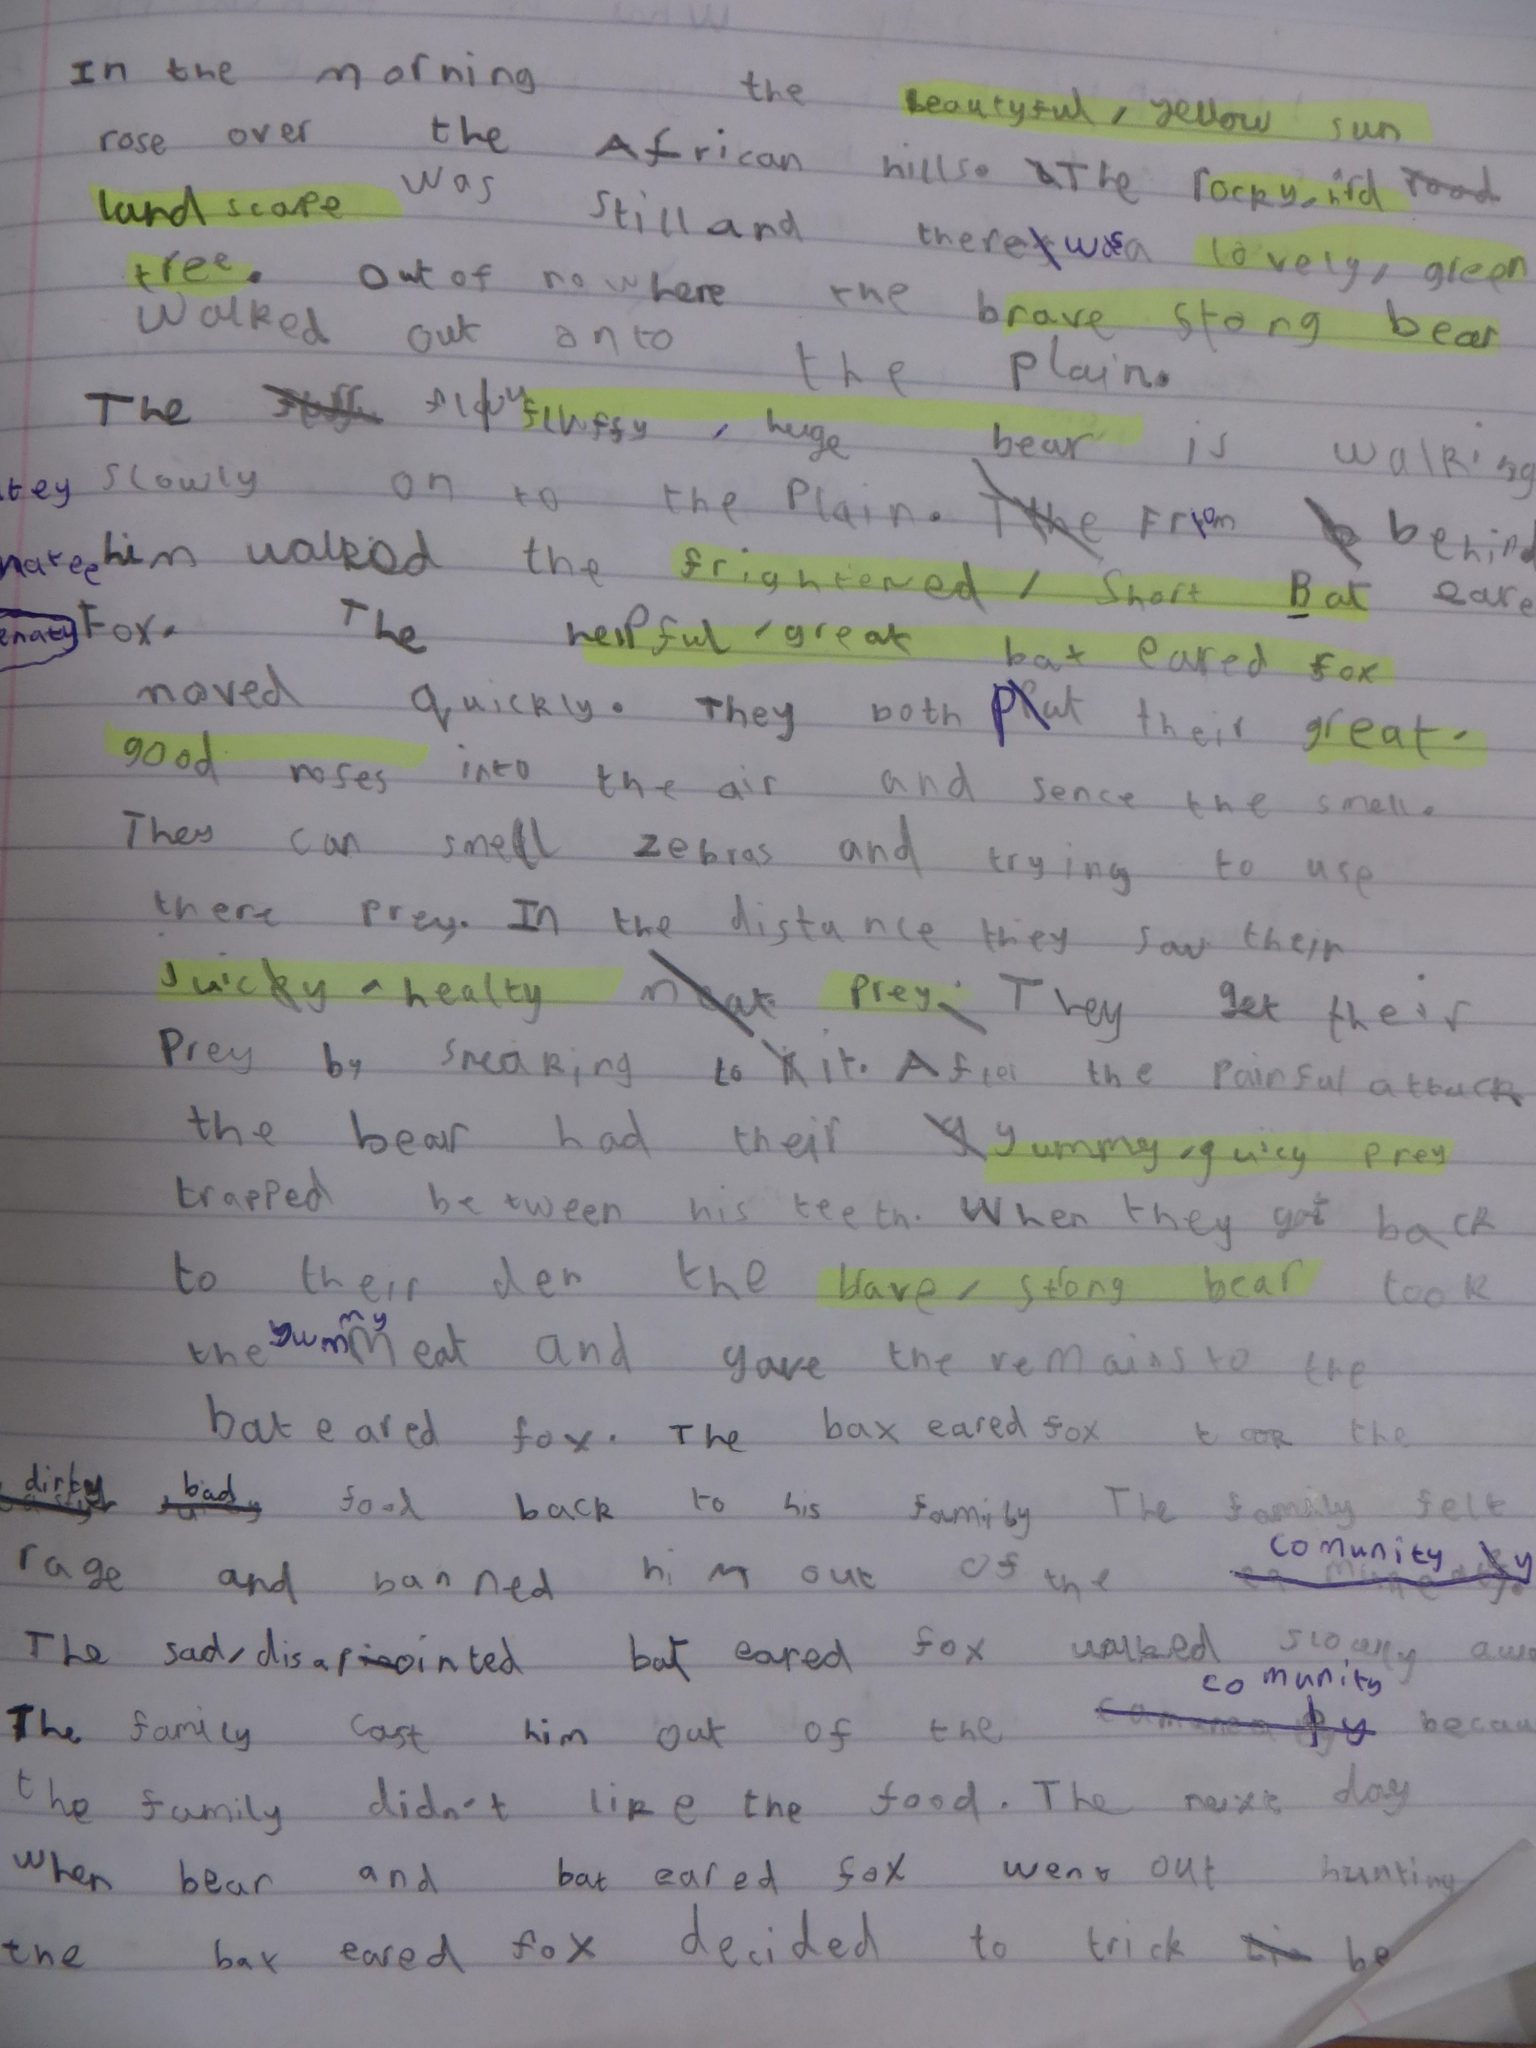 In the morning the beautyful, yellow sun
rose over the African hills. The rocky, rood
landscape was still and there was a lovely, green
tree. Out of nowhere the brave stong bear
walked out onto the plain.
The fluffy, huge bear is walking
slowly on to the Plain. The From behind
him walked the frightened, short Bat eare
Fox. The helpful, great bat eared fox
moved quickly. They both put their great.
good noses into the air and sence the smell.
They can smell zebras and trying to use
there prey. In the distance they saw their
juicky, healty meat prey. They get their
Prey by sneaking to it. After the painful attack
the bear had their y yummy, guicy prey
trapped between his teeth. When they got back
to their den the brave, strong bear took
the yummy meat and gave the remains to the
bat eared fox. The bax eared fox took the
dirty bad food back to his family The family felt
rage and banned him out of the comunity
The sad, disapointed bat eared fox walked slowly awa
The family cast him out of the comunity becau
the family didn't like the food. The next day
when bear and bat eared fox went out hunting
the bax eared fox decided to trick be